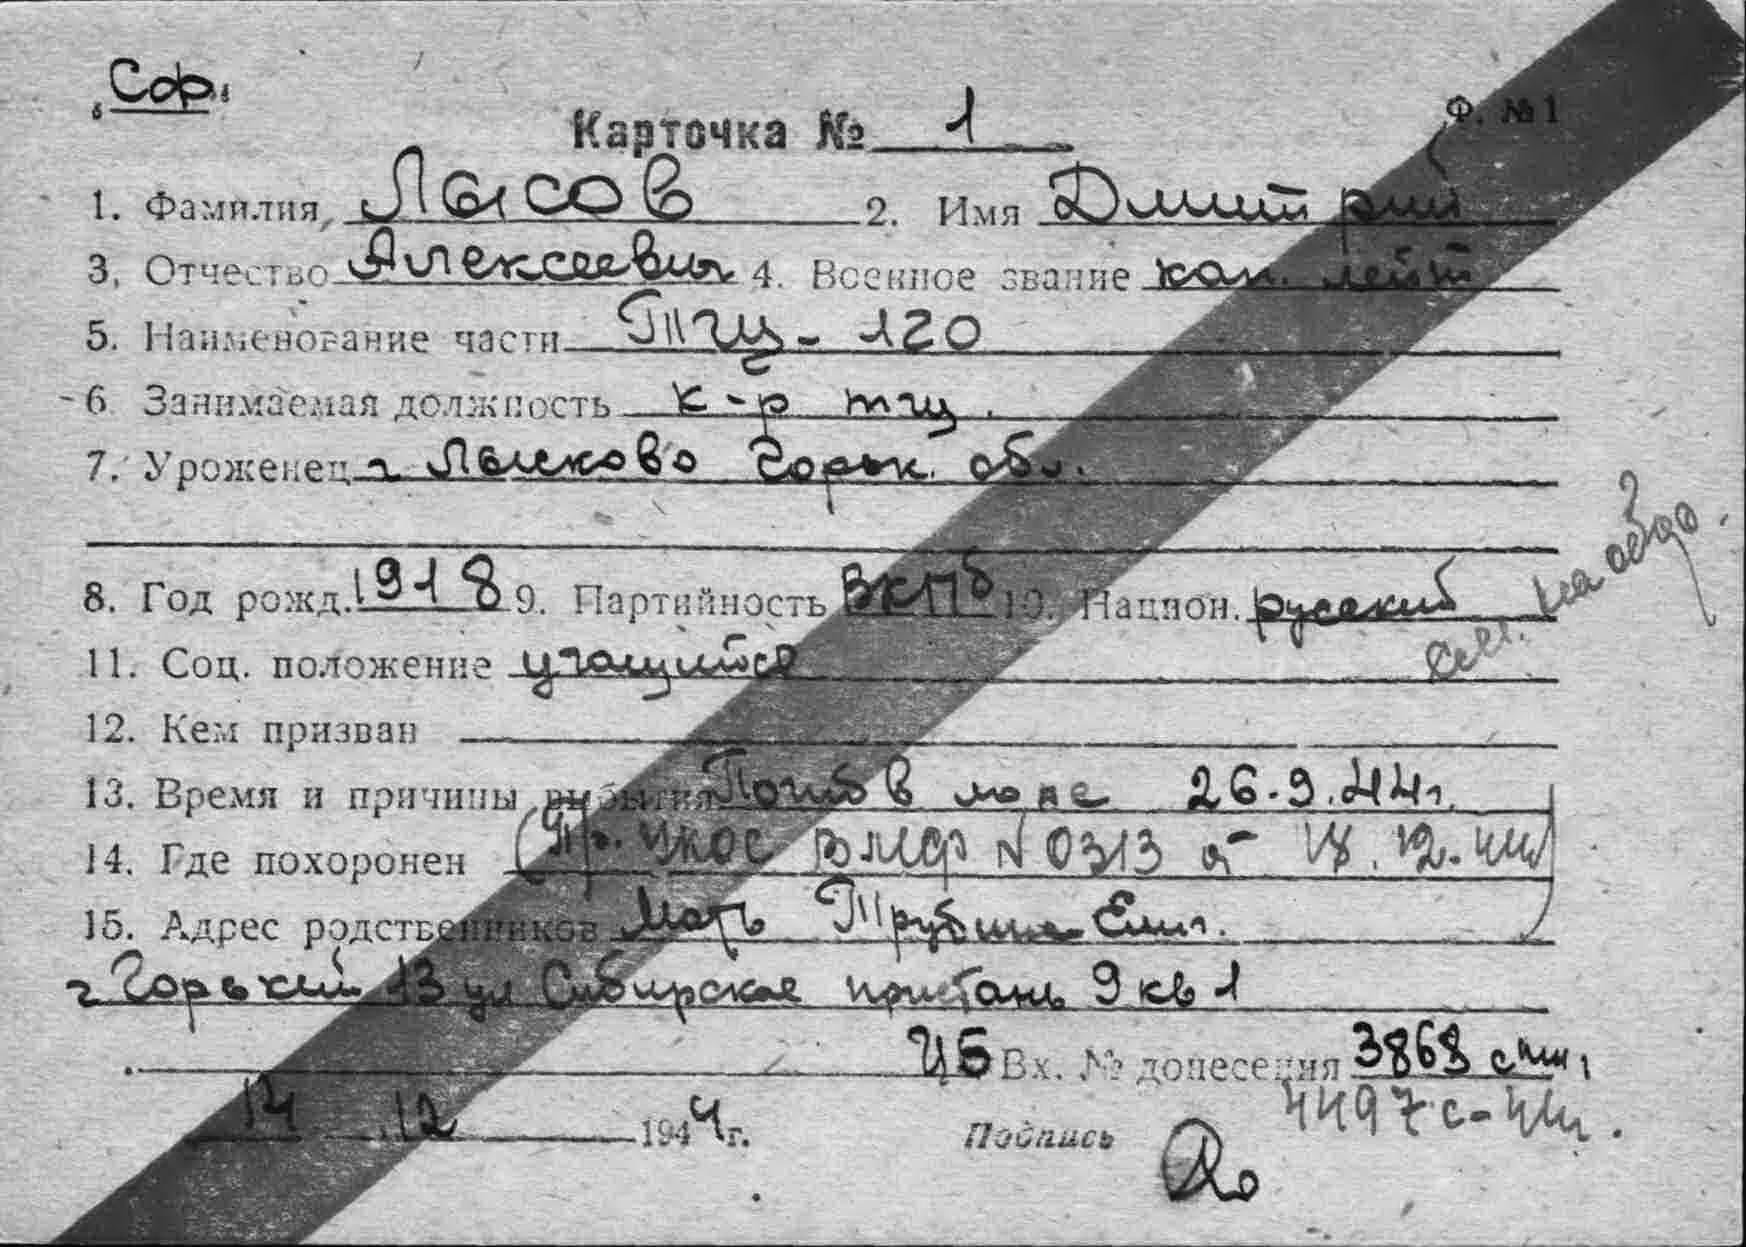 „Соф“
Карточка № 1 Ф. № 1
1. Фамилия, Лысов 2. Имя Дмитрий
3, Отчество Алексеевич 4. Военное звание кап. лейт
5. Наименование части ТЩ - 120
6. Занимаемая должность к-р тщ.
7. Уроженец г Лысково Горьк. обл.
8. Год рожд. 1918 9. Партийность ВКПб 10. Национ. русский
см. на обор.
11. Соц. положение учащийся
12. Кем призван
13. Время и причины выбытия Погиб в море 26.9.44г.
14. Где похоронен (Пр. УКОС ВМФ N 0313 от 18.12.44г)
15. Адрес родственников Мать Трубина
г Горький 13 ул Сибирская пристань 9 кв 1
ЦБ Вх. № донесения 3868 с
4497с-44г.
14 .12 1944г. Подпись